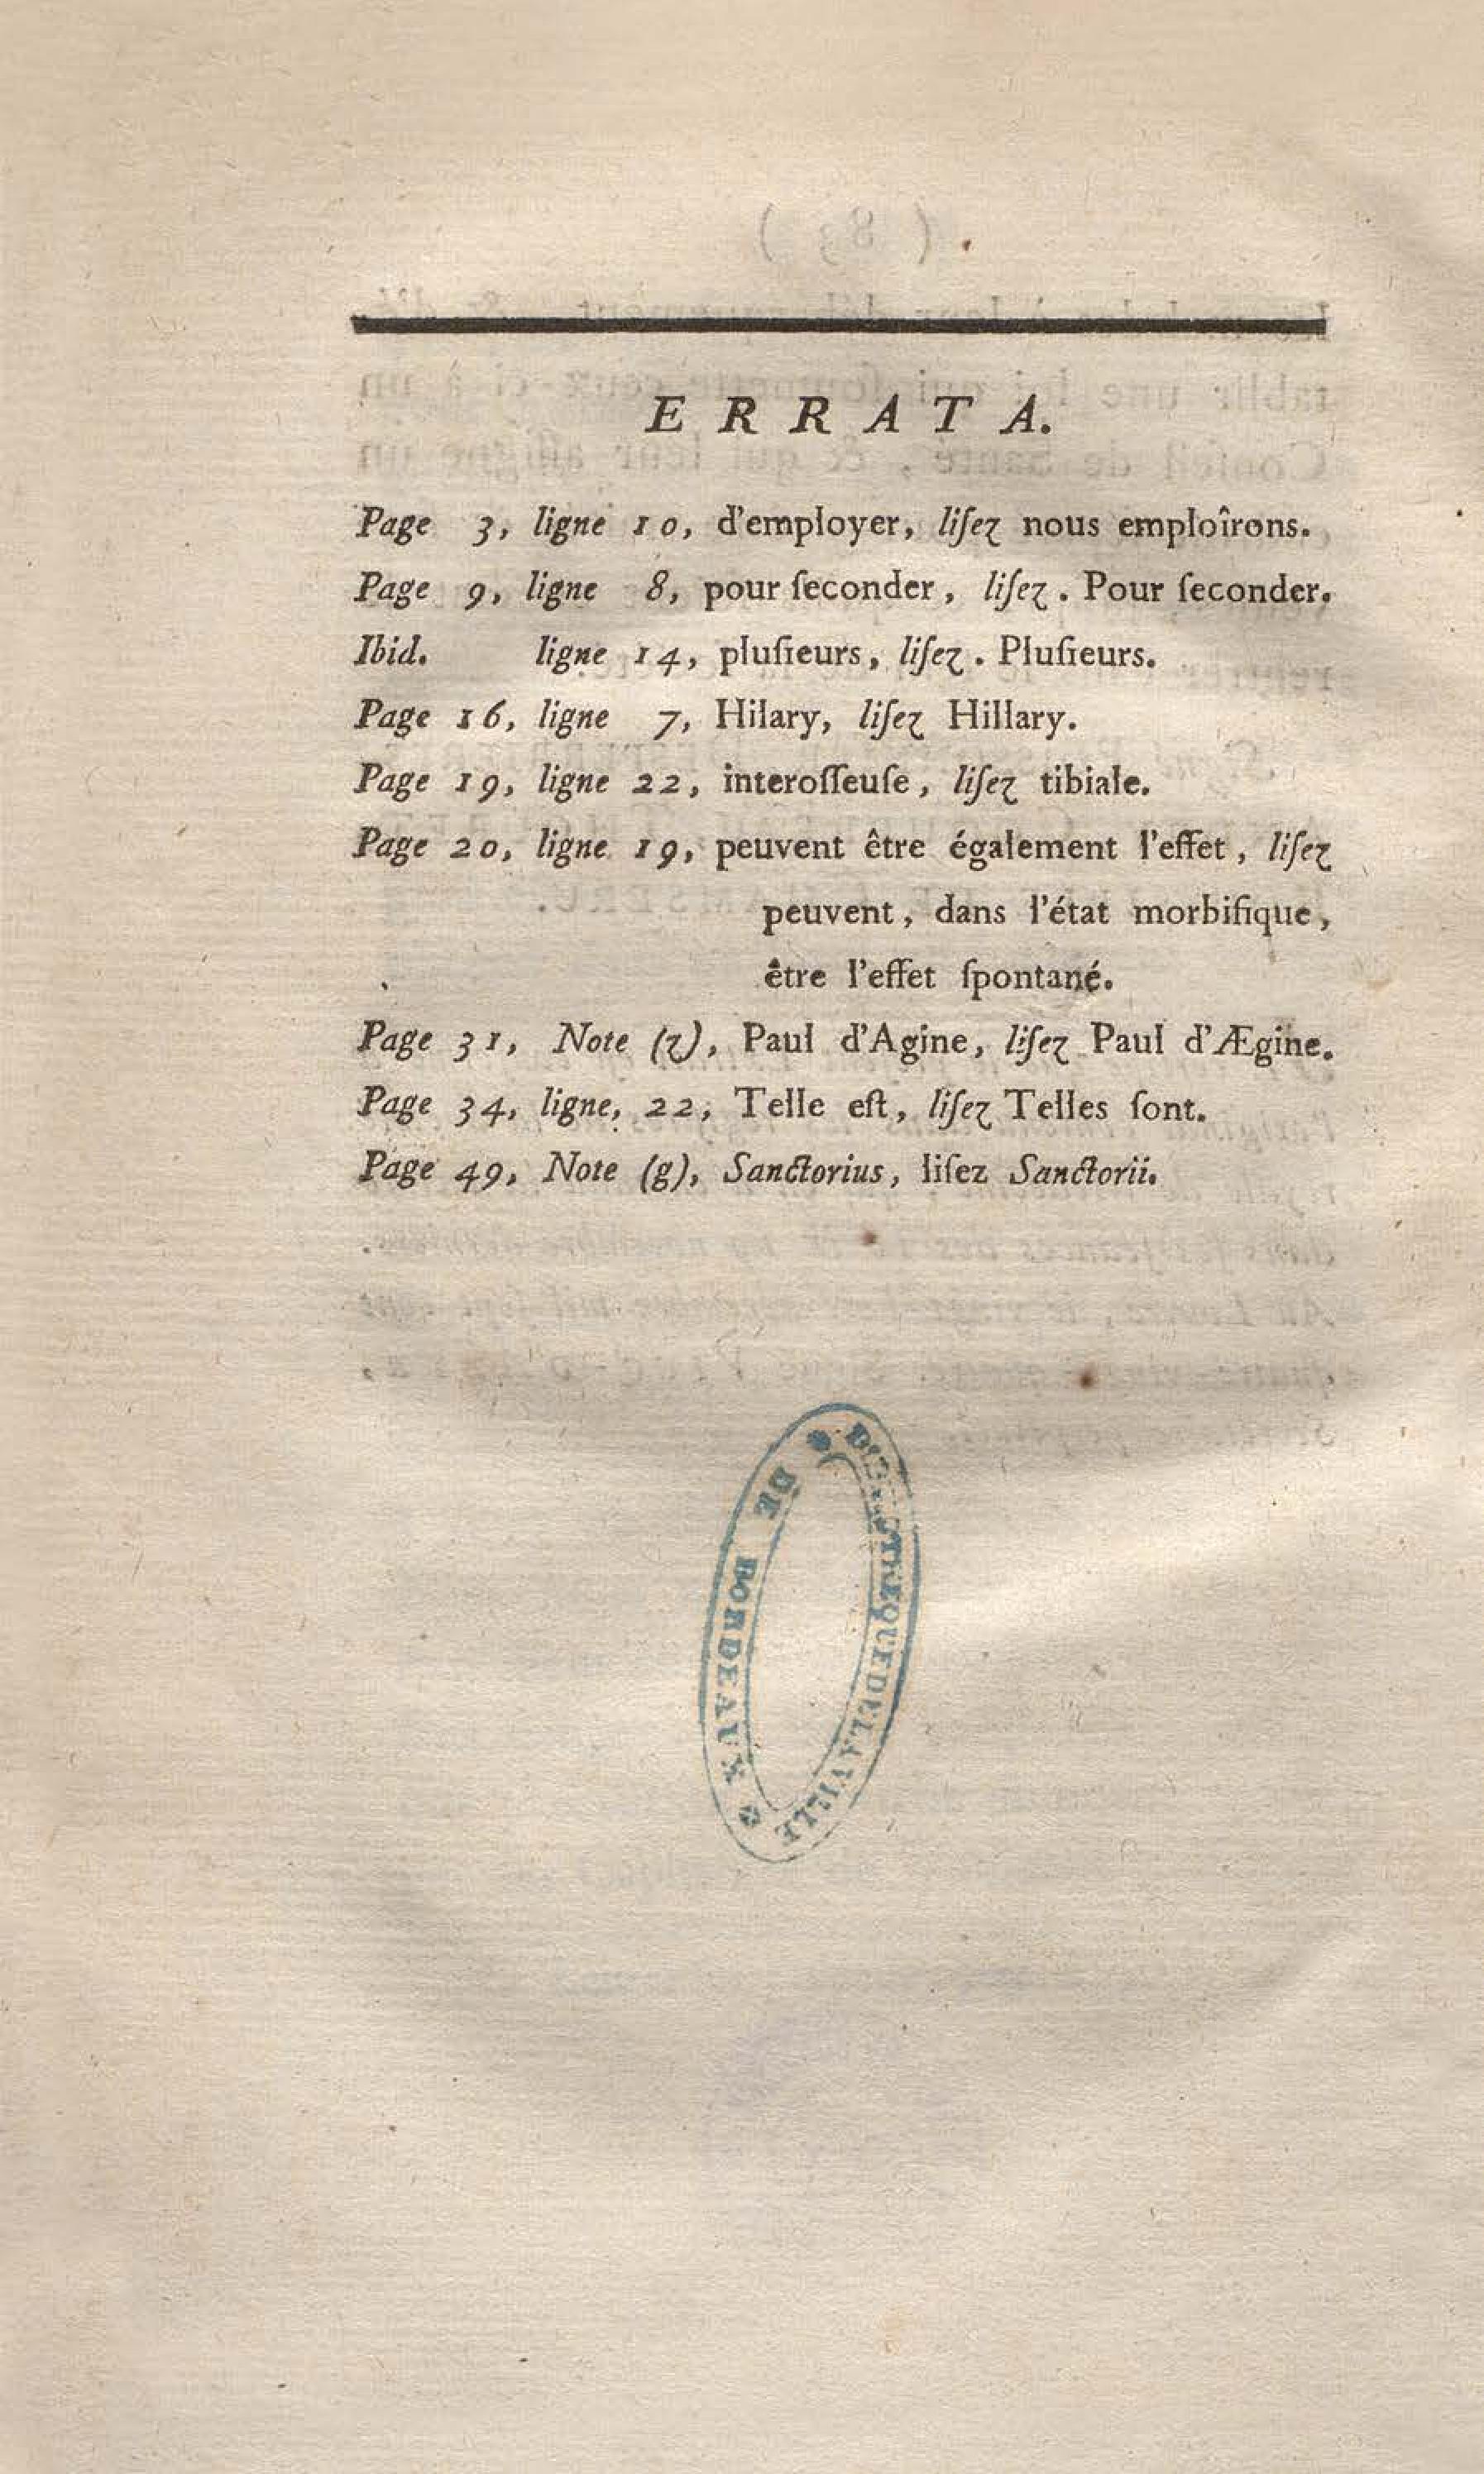 ERRATA.
Page 3, ligne 10, d'employer, liſez nous emploîrons.
Page 9, ligne 8, pour ſeconder, liſez. Pour ſeconder.
Ibid. ligne 14, pluſieurs, liſez. Pluſieurs.
Page 16, ligne 7, Hilary, liſez Hillary.
Page 19, ligne 22, interoſſeuſe, liſez tibiale.
Page 20, ligne 19, peuvent être également l'effet, liſez
peuvent, dans l'état morbifique,
être l'effet ſpontané.
Page 31, Note (z), Paul d'Agine, liſez Paul d'Ægine.
Page 34, ligne, 22, Telle eſt, liſez Telles ſont.
Page 49, Note (g), Sanctorius, liſez Sanctorii.
BIBLIOTHEQUE DE LA VILLE
DE BORDEAUX